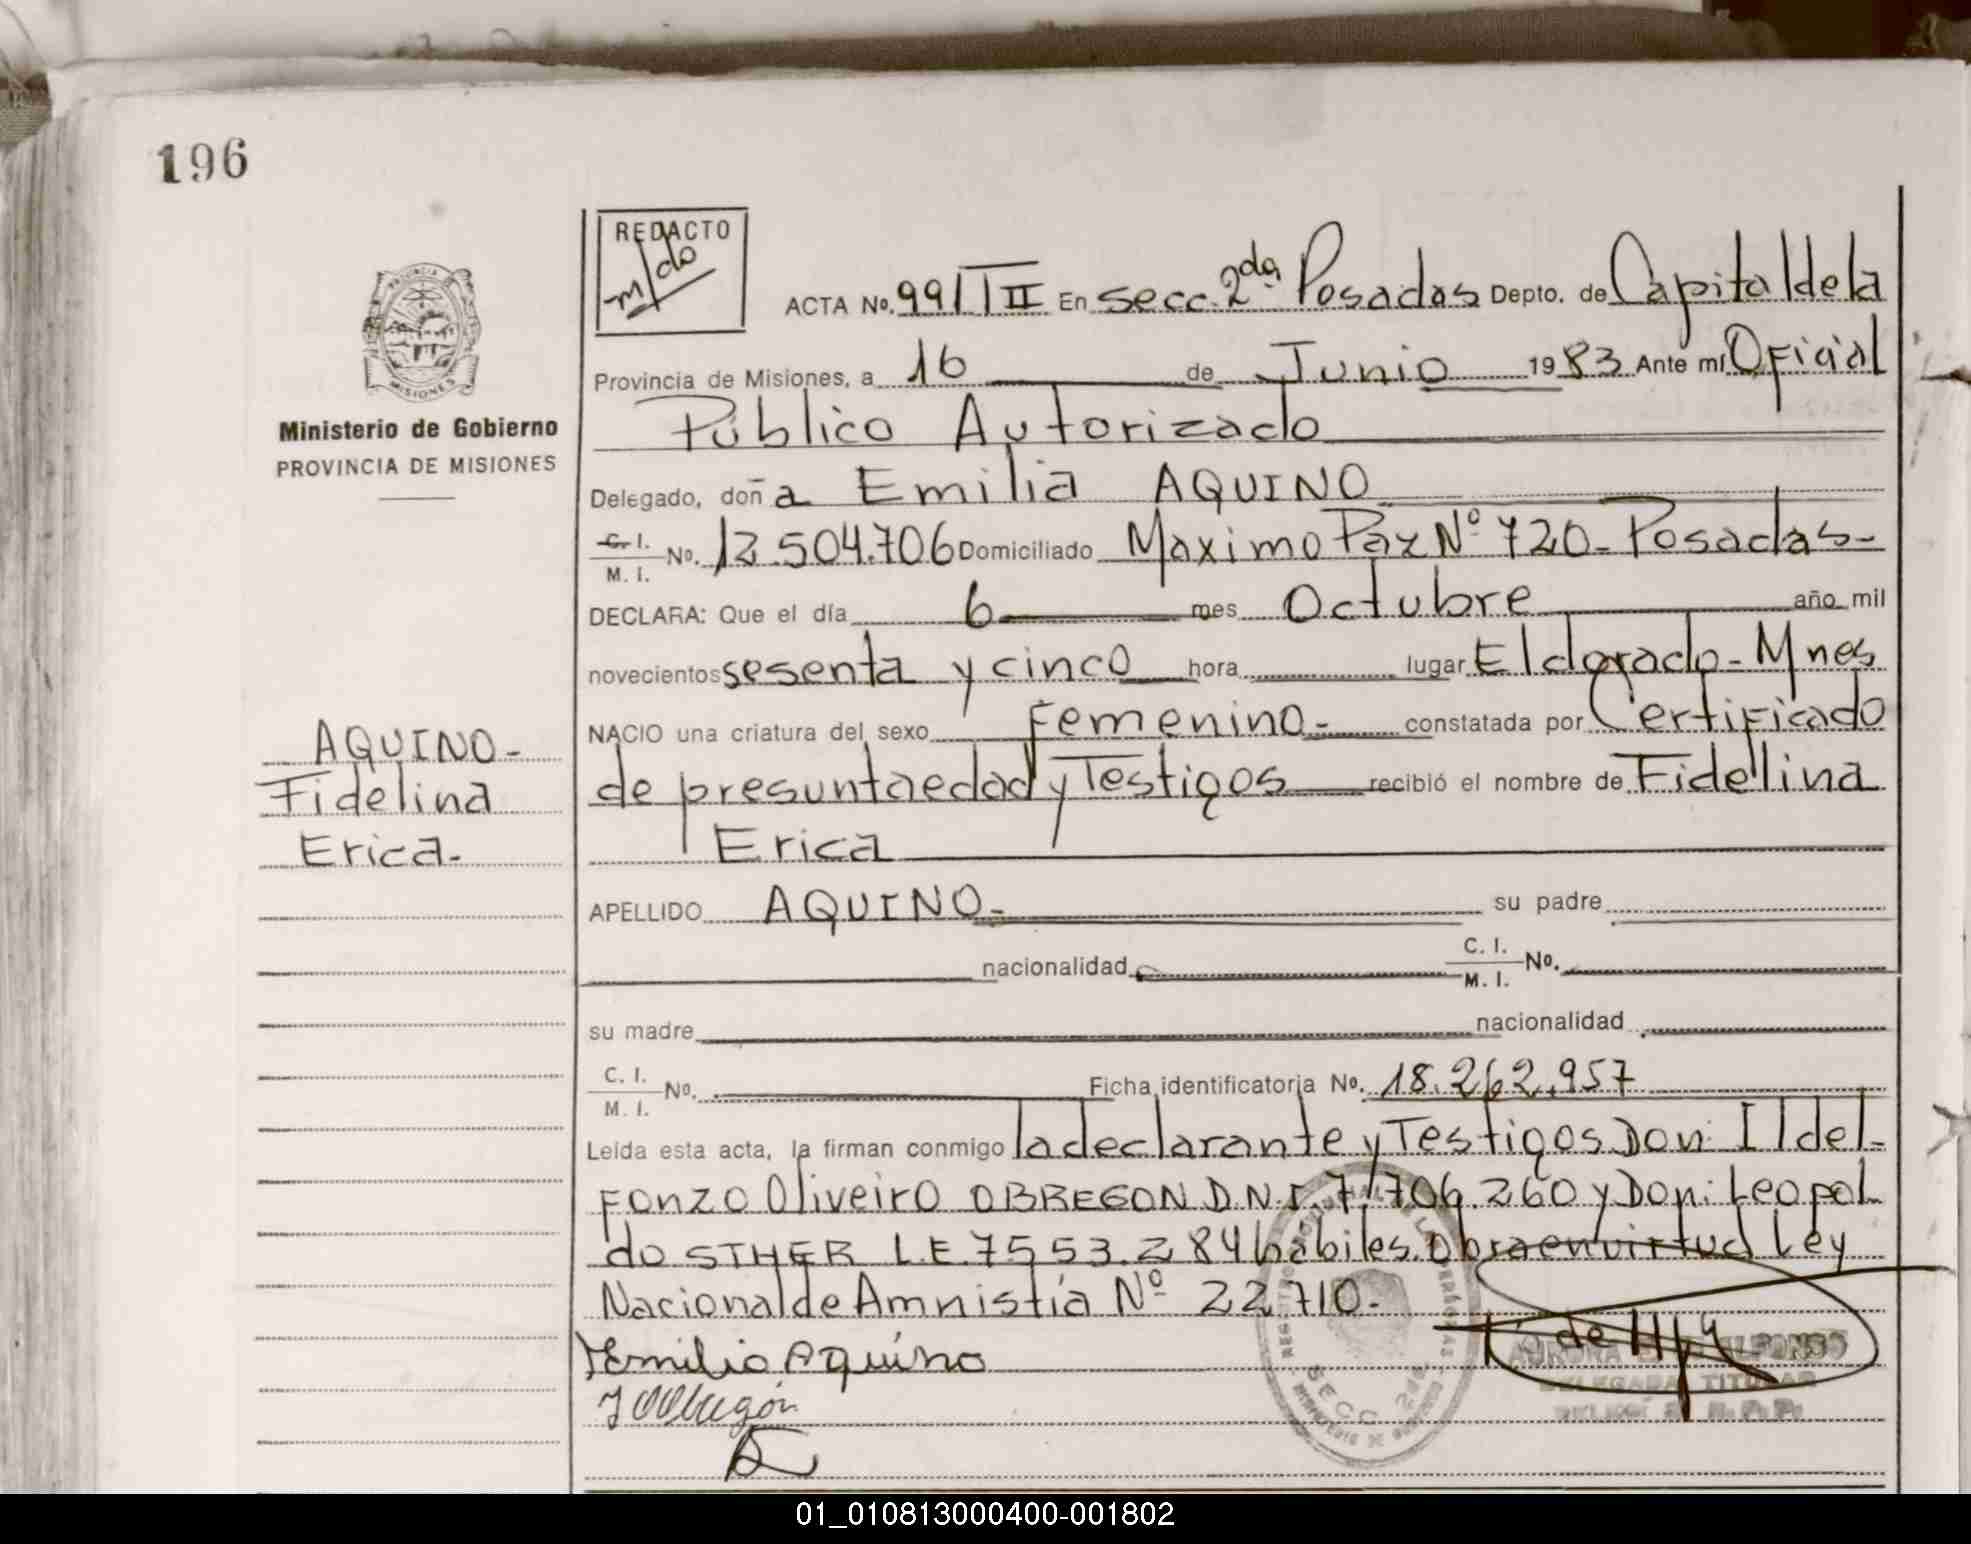 196
REDACTO
m/do
ACTA No. 991 T II En secc. 2da Posadas Depto. de Capital de la
Provincia de Misiones, a 16 de Junio 1983 Ante mí Oficial
Ministerio de Gobierno
PROVINCIA DE MISIONES
Público Autorizado
Delegado, doña Emilia AQUINO
C. I. No. 12.504.706 Domiciliado Maximo Paz Nº 720 - Posadas -
M. I.
DECLARA: Que el día 6 mes Octubre año mil
novecientos sesenta y cinco hora lugar Eldorado - Mnes
NACIO una criatura del sexo Femenino - constatada por Certificado
de presunta edad y Testigos recibió el nombre de Fidelina
Erica
AQUINO -
Fidelina
Erica -
APELLIDO AQUINO - su padre
nacionalidad C. I. No.
M. I.
su madre nacionalidad
C. I. No. Ficha identificatoria No. 18.262.957
M. I.
Leída esta acta, la firman conmigo la declarante y Testigos Don: Ildel-
fonzo Oliveiro OBREGON D.N.I. 7.706.260 y Don: Leopol
do STHER L.E. 7553.284 hábiles. Obra en virtud Ley
Nacional de Amnistía Nº 22.710 -
Emilia Aquino
DELEGADA TITULAR
SECC. 2da
01_010813000400-001802